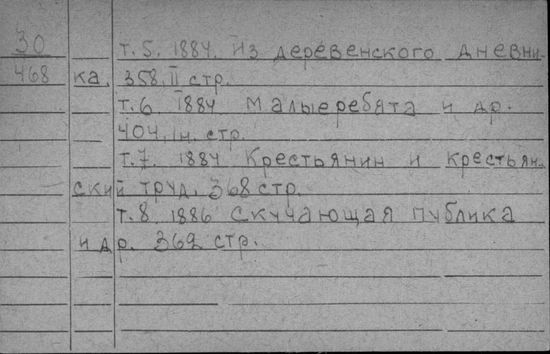 30 т.5. 1884. Из деревенского дневни-
468 ка. 358, II стр.
т.6 1884 Малыеребята и др.
404, IH. стр.
т.7. 1884 Крестьянин и крестьян-
ский труд. 368 стр.
т.8. 1886 Скучающая публика
и др. 362 стр.